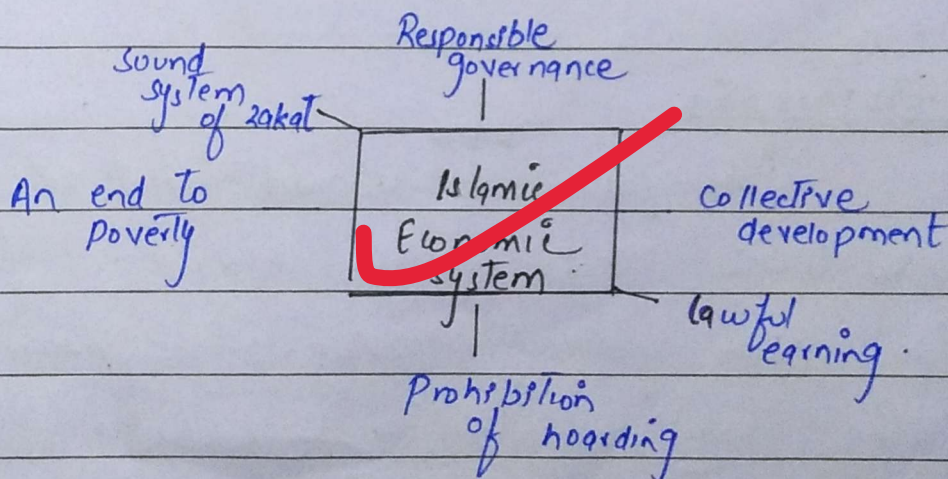 Responsible
governance
Sound
system
of zakat
An end to
Poverty
Islamic
Economic
system
Collective
development
lawful
earning.
Prohibition
of hoarding